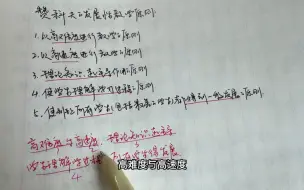 赞科夫的发展性教学原则
1. 以高难度进行教学的原则
2. 以高速度进行教学的原则
3. 理论知识起主导作用的原则
4. 使学生理解学习过程的原则
5. 使班上所有学生包括最差的学生都得到一般发展的原则
高难度与高速度，理论知识主导
3
学生理解学过程 所有学生得发展
4
高难度与高速度